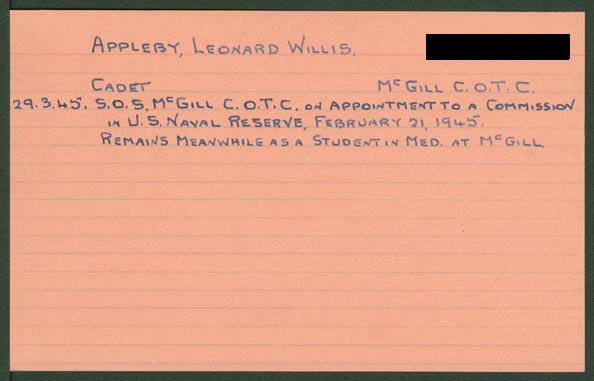 APPLEBY, LEONARD WILLIS.
CADET McGILL C.O.T.C.
29.3.45. S.O.S. McGILL C.O.T.C. ON APPOINTMENT TO A COMMISSION
IN U.S. NAVAL RESERVE, FEBRUARY 21, 1945.
REMAINS MEANWHILE AS A STUDENT IN MED. AT McGILL.